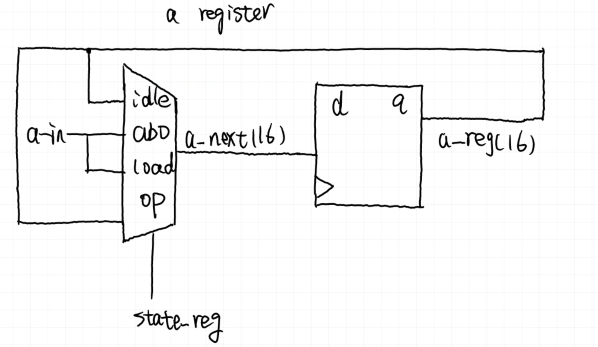 a register
idle
a-in
ab0
load
op
a_next(16)
d
q
a_reg(16)
state_reg